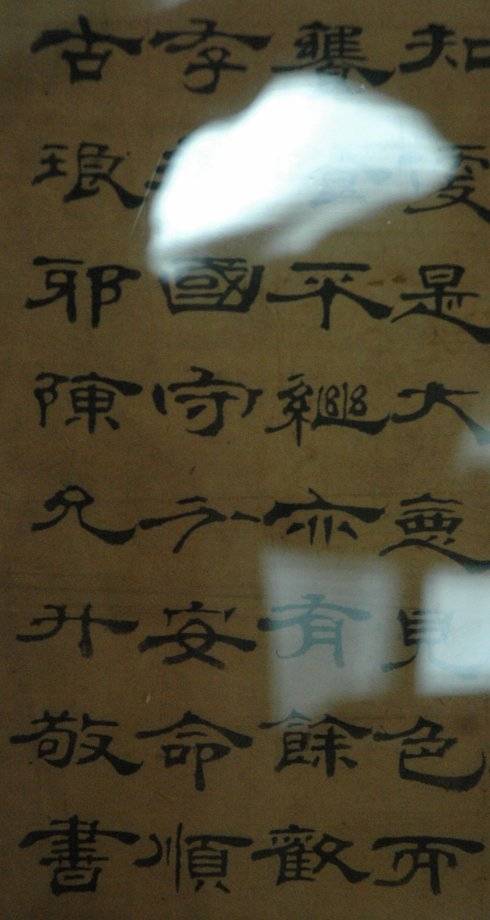 知便是大惡見色而
饔不繼亦有餘歡
存國守分安命順
古琅邪陳允升敬書